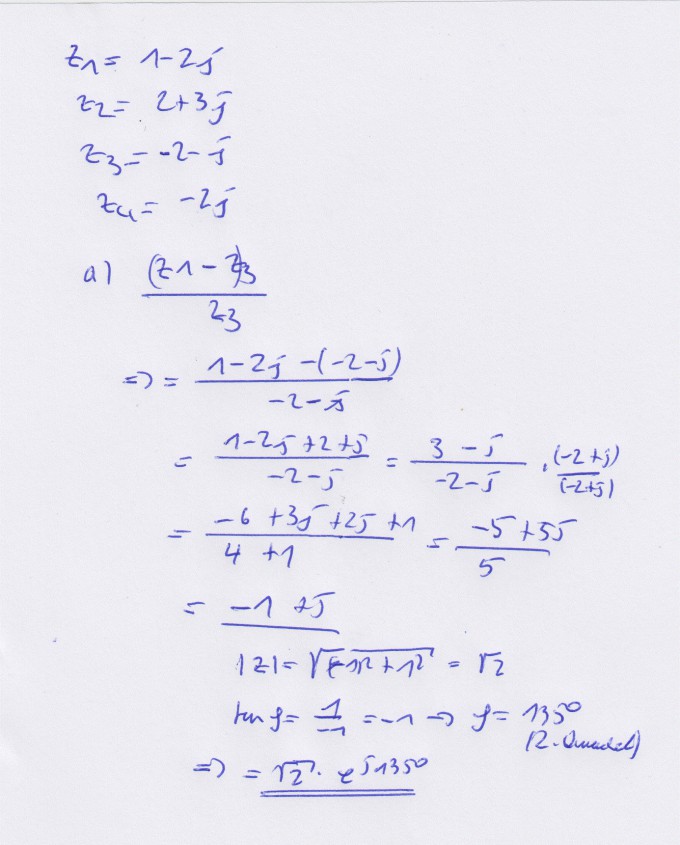 z1 = 1-2j
z2 = 2+3j
z3 = -2-j
z4 = -2j
a) (z1 - z3) / z3
=> = (1-2j -(-2-j)) / (-2-j)
= (1-2j+2+j) / (-2-j) = (3-j) / (-2-j) · (-2+j) / (-2+j)
= (-6+3j+2j+1) / (4+1) = (-5+5j) / 5
= -1+j
|z| = √((-1)²+1²) = √2
tan φ = 1 / -1 = -1 => φ = 135°
(2. Quadrant)
=> = √2 · e^j135°